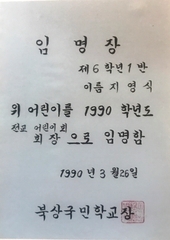 임명장
제6학년1반
이름 지영식
위 어린이를 1990 학년도
전교 어린이회
회장 으로 임명함
1990년 3월 26일
북상국민학교장